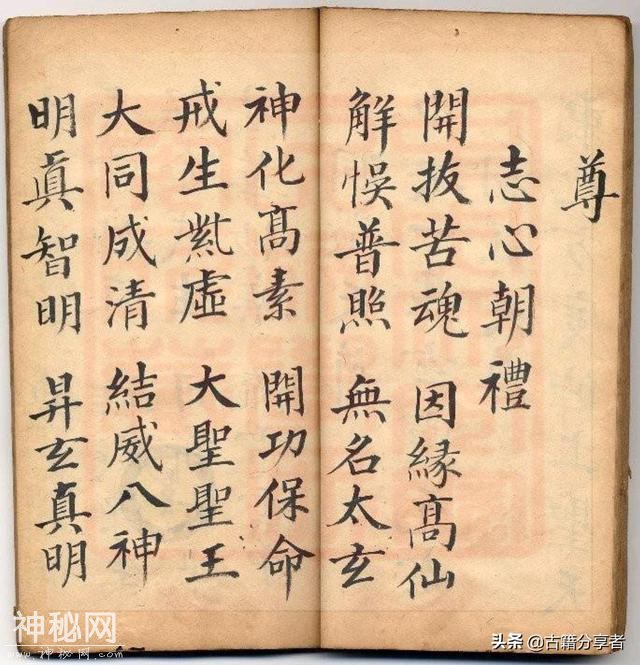 尊
志心朝禮
開拔苦魂 因緣髙仙
解悮普照 無名太玄
神化髙素 開功保命
戒生炁虛 大聖聖王
大同成清 結威八神
明眞智明 昇玄真明
神秘网
www.shenmiwang.com
头条 @古籍分享者